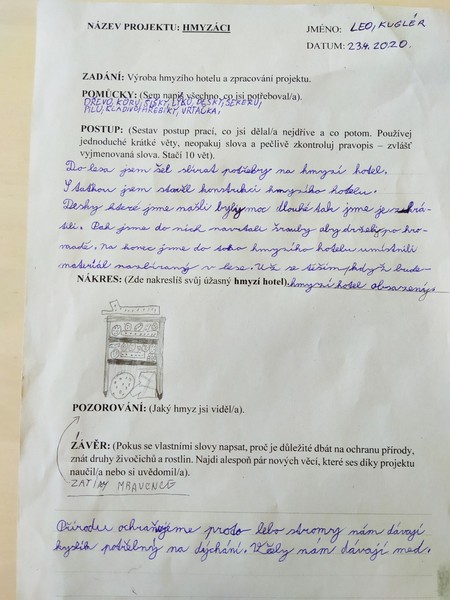 NÁZEV PROJEKTU: HMYZÁCI
JMÉNO: LEO, KUGLÉR
DATUM: 23.4.2020.
ZADÁNÍ: Výroba hmyzího hotelu a zpracování projektu.
POMŮCKY: (Sem napiš všechno, co jsi potřeboval/a).
DŘEVO, KŮRU, ŠIŠKY, LÝKO, DESKY, SEKERU,
PILU, KLADIVO, HŘEBÍKY, VRTAČKA,
POSTUP: (Sestav postup prací, co jsi dělal/a nejdříve a co potom. Používej
jednoduché krátké věty, neopakuj slova a pečlivě zkontroluj pravopis – zvlášť
vyjmenovaná slova. Stačí 10 vět).
Do lesa jsem šel sbírat potřeby na hmyzí hotel.
S taťkou jsem stavěl konstrukci hmyzího hotelu.
Desky které jsme našli byly moc dlouhé tak jsme je zkrá-
tili. Pak jsme do nich navrtali šrouby aby držely po hro-
madě. Na konec jsme do toho hmyzího hotelu umístnili
materiál nasbíraný v lese. Už se těším když bude
NÁKRES: (Zde nakreslíš svůj úžasný hmyzí hotel). hmyzí hotel obsazený.
POZOROVÁNÍ: (Jaký hmyz jsi viděl/a).
ZÁVĚR: (Pokus se vlastními slovy napsat, proč je důležité dbát na ochranu přírody,
znát druhy živočichů a rostlin. Najdi alespoň pár nových věcí, které ses díky projektu
naučil/a nebo si uvědomil/a).
ZATÍM MRAVENCE
Přírodu ochraňujeme proto lebo stromy nám dávají
kyslík potřebný na dýchání. Včely nám dávají med.